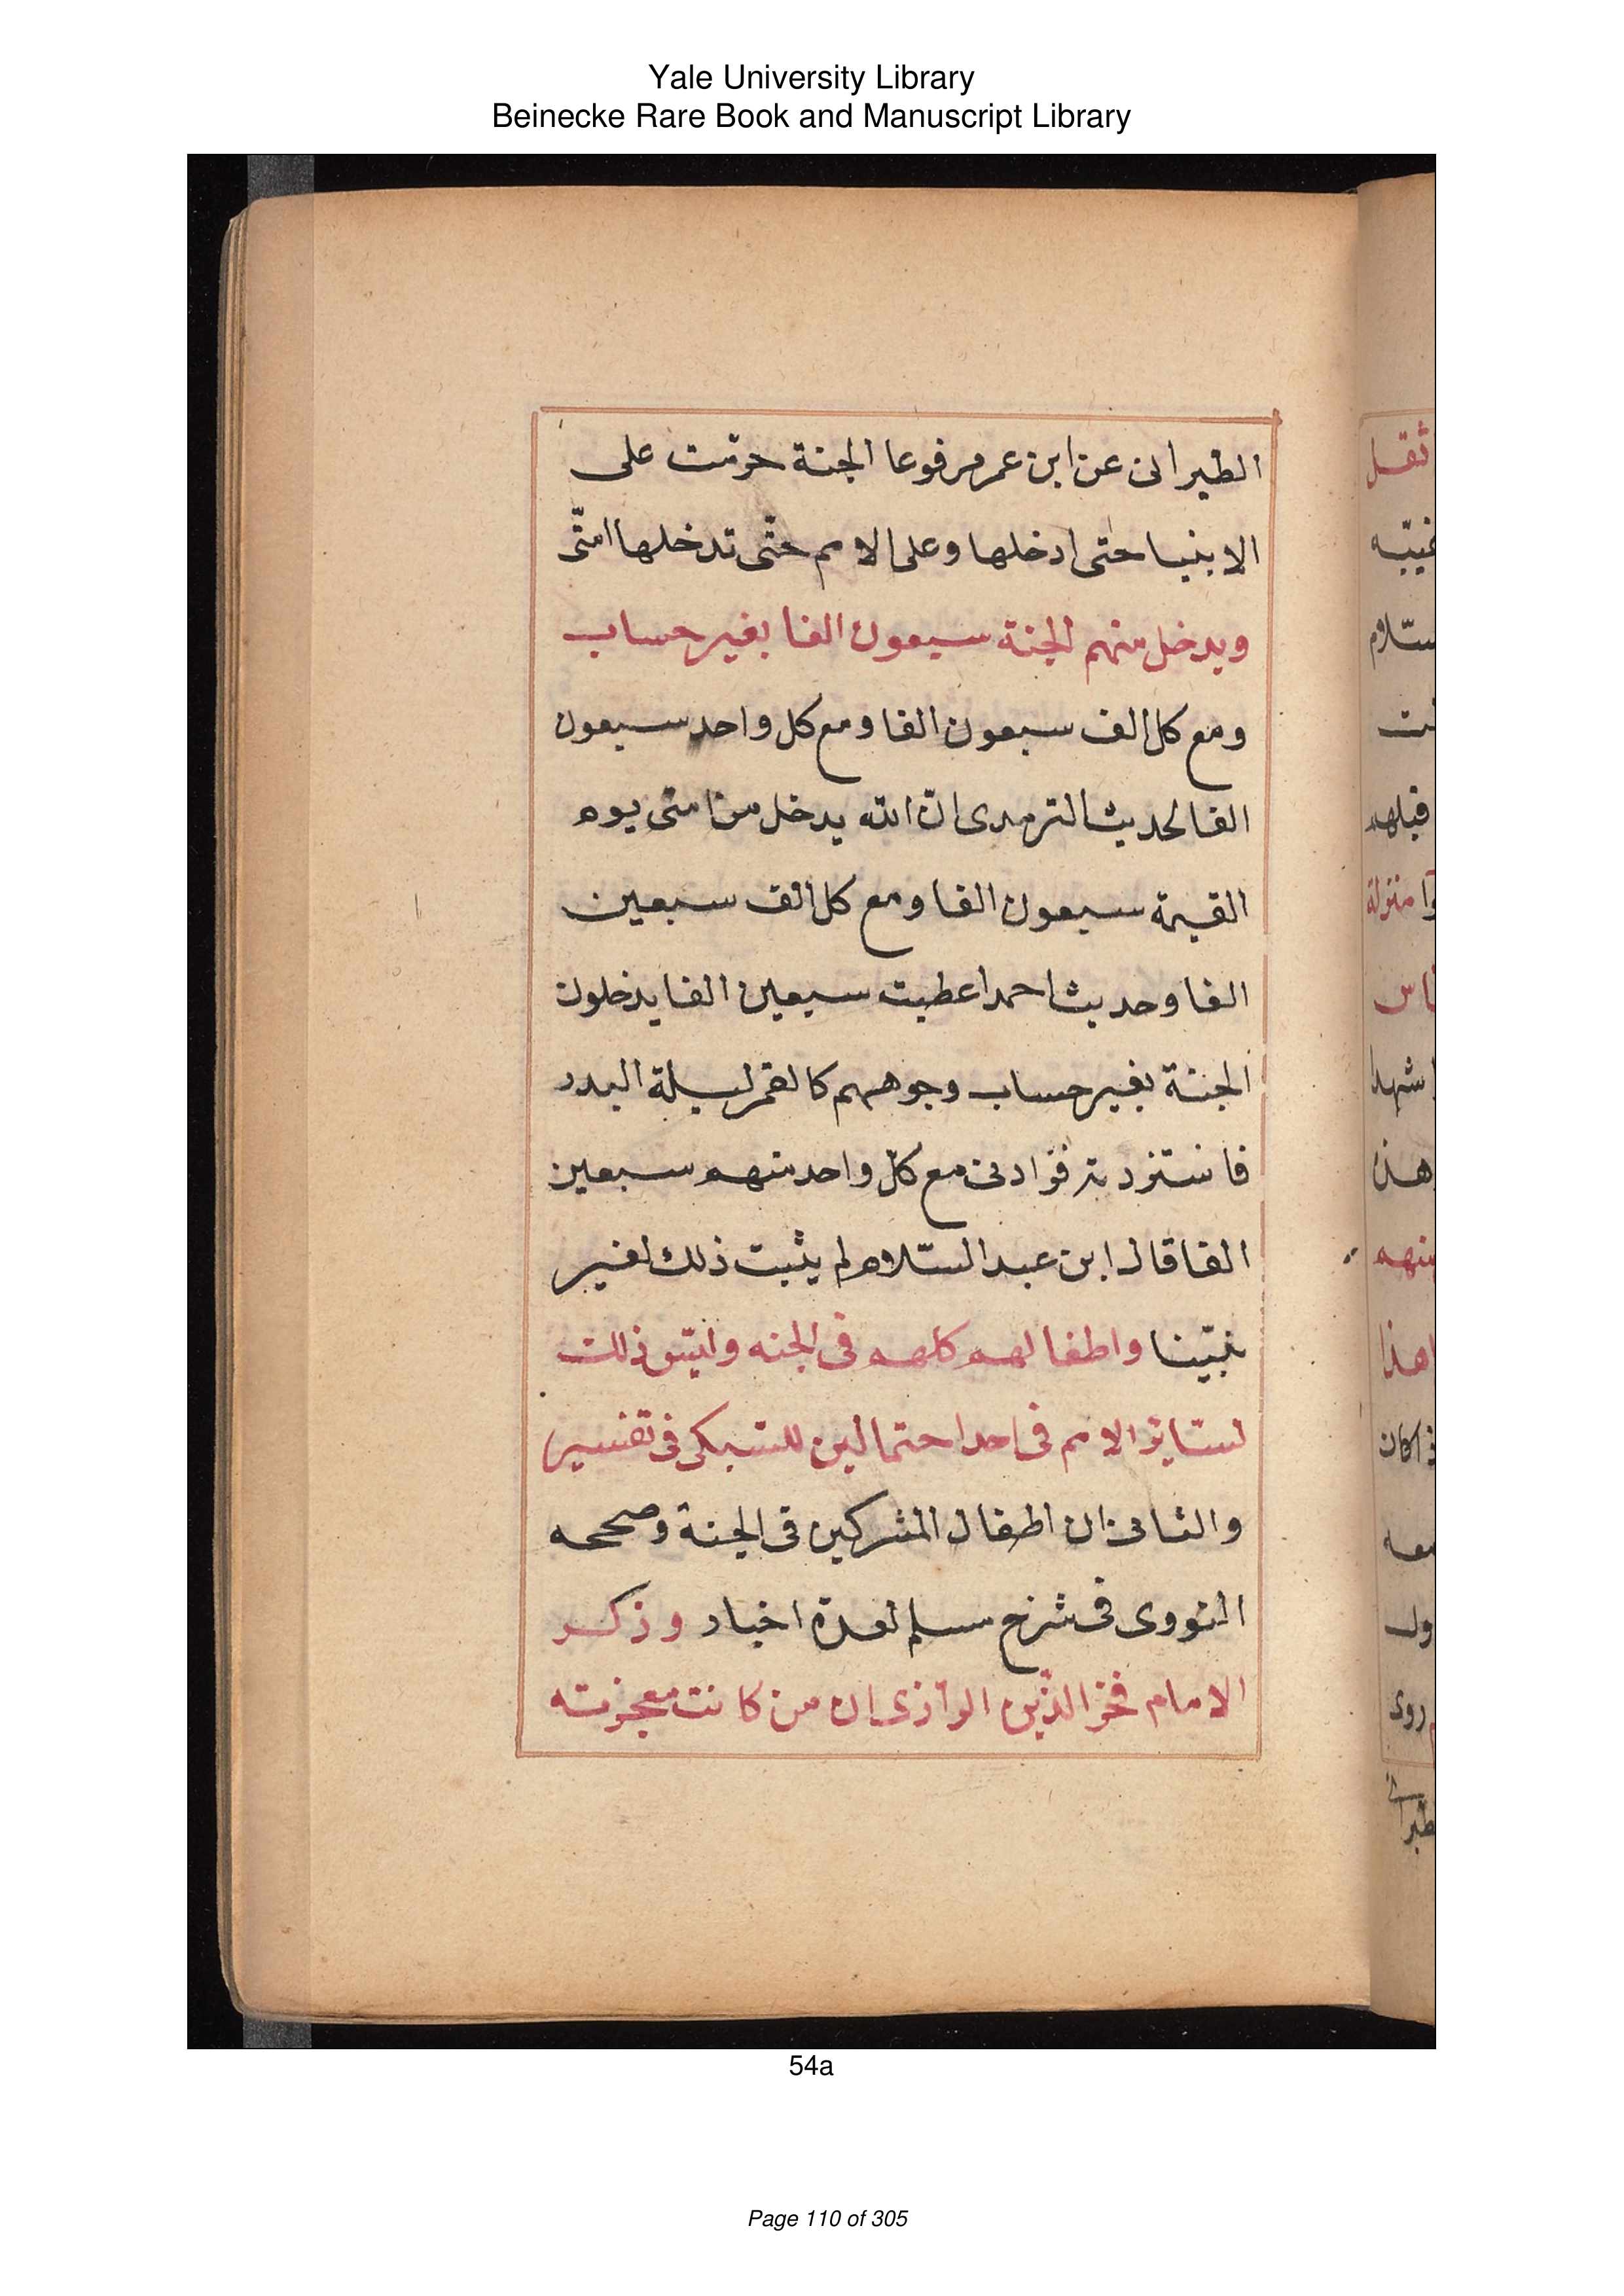 Yale University Library
Beinecke Rare Book and Manuscript Library
الطبرانى عن ابن عمر مرفوعا الجنة حرمت على
الابنيا حتى ادخلها وعلى الامم حتّى تدخلها امتّى
ويدخل منهم الجنة سبعون الفا بغير حساب
ومع كل الف سبعون الفا ومع كل واحد سبعون
الفا لحديث الترمدى انّ الله يدخل من امتى يوم
القيمة سبعون الفا ومع كل الف سبعين
الفا وحديث احمد اعطيت سبعين الفا يدخلون
الجنة بغير حساب وجوههم كالقمر ليلة البدر
فاستزدت فزادنى مع كلّ واحد منهم سبعين
الفا قال ابن عبد السّلام لم يثبت ذلك لغير
نبيّنا واطفالهم كلهم فى الجنه وليس ذلك
لسّاير الامم فى احد احتمالين للسّبكى فى تفسير
والثانى ان اطفال المشركين فى الجنة وصححه
النووى فى شرح مسلم لعدة اخبار وذكر
الامام فخر الدّين الرازى ان من كانت معجزته
ثقل
منزلة
شهدا
هذا
معه
روى
54a
Page 110 of 305